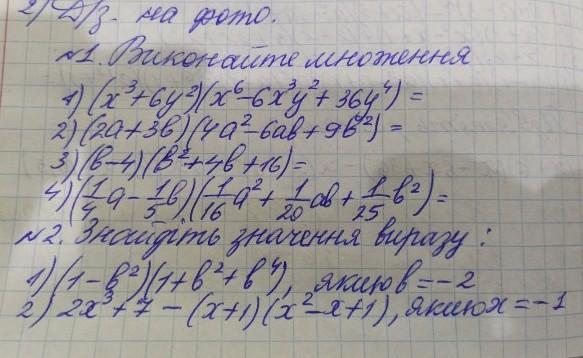 2) Д/з. на фото.
№1. Виконайте множення
1) (x³+6y²)(x⁶-6x³y²+36y⁴)=
2) (2a+3b)(4a²-6ab+9b²)=
3) (b-4)(b²+4b+16)=
4) (1/4a-1/5b)(1/16a²+1/20ab+1/25b²)=
№2. Знайдіть значення виразу:
1) (1-b²)(1+b²+b⁴), якщо b=-2
2) 2x³+7-(x+1)(x²-x+1), якщо x=-1